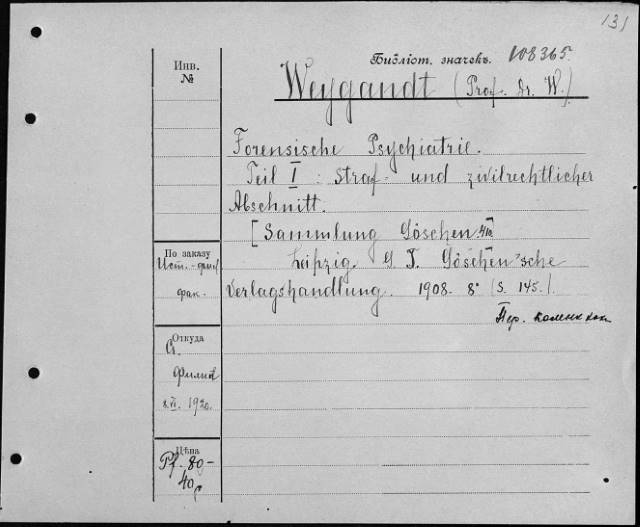 131
Библіот. значекъ. 108365.
Weygandt (Prof. Dr. W.)
Forensische Psychiatrie.
Teil I : Straf- und zivilrechtlicher
Abschnitt.
[Sammlung Göschen 410]
Leipzig. G. J. Göschen'sche
Verlagshandlung. 1908. 8° (S. 145.)
Пер.
Инв.
№
По заказу
Ист.-фил
фак.
Откуда
1920.
Цѣна
Pf. 80-
40